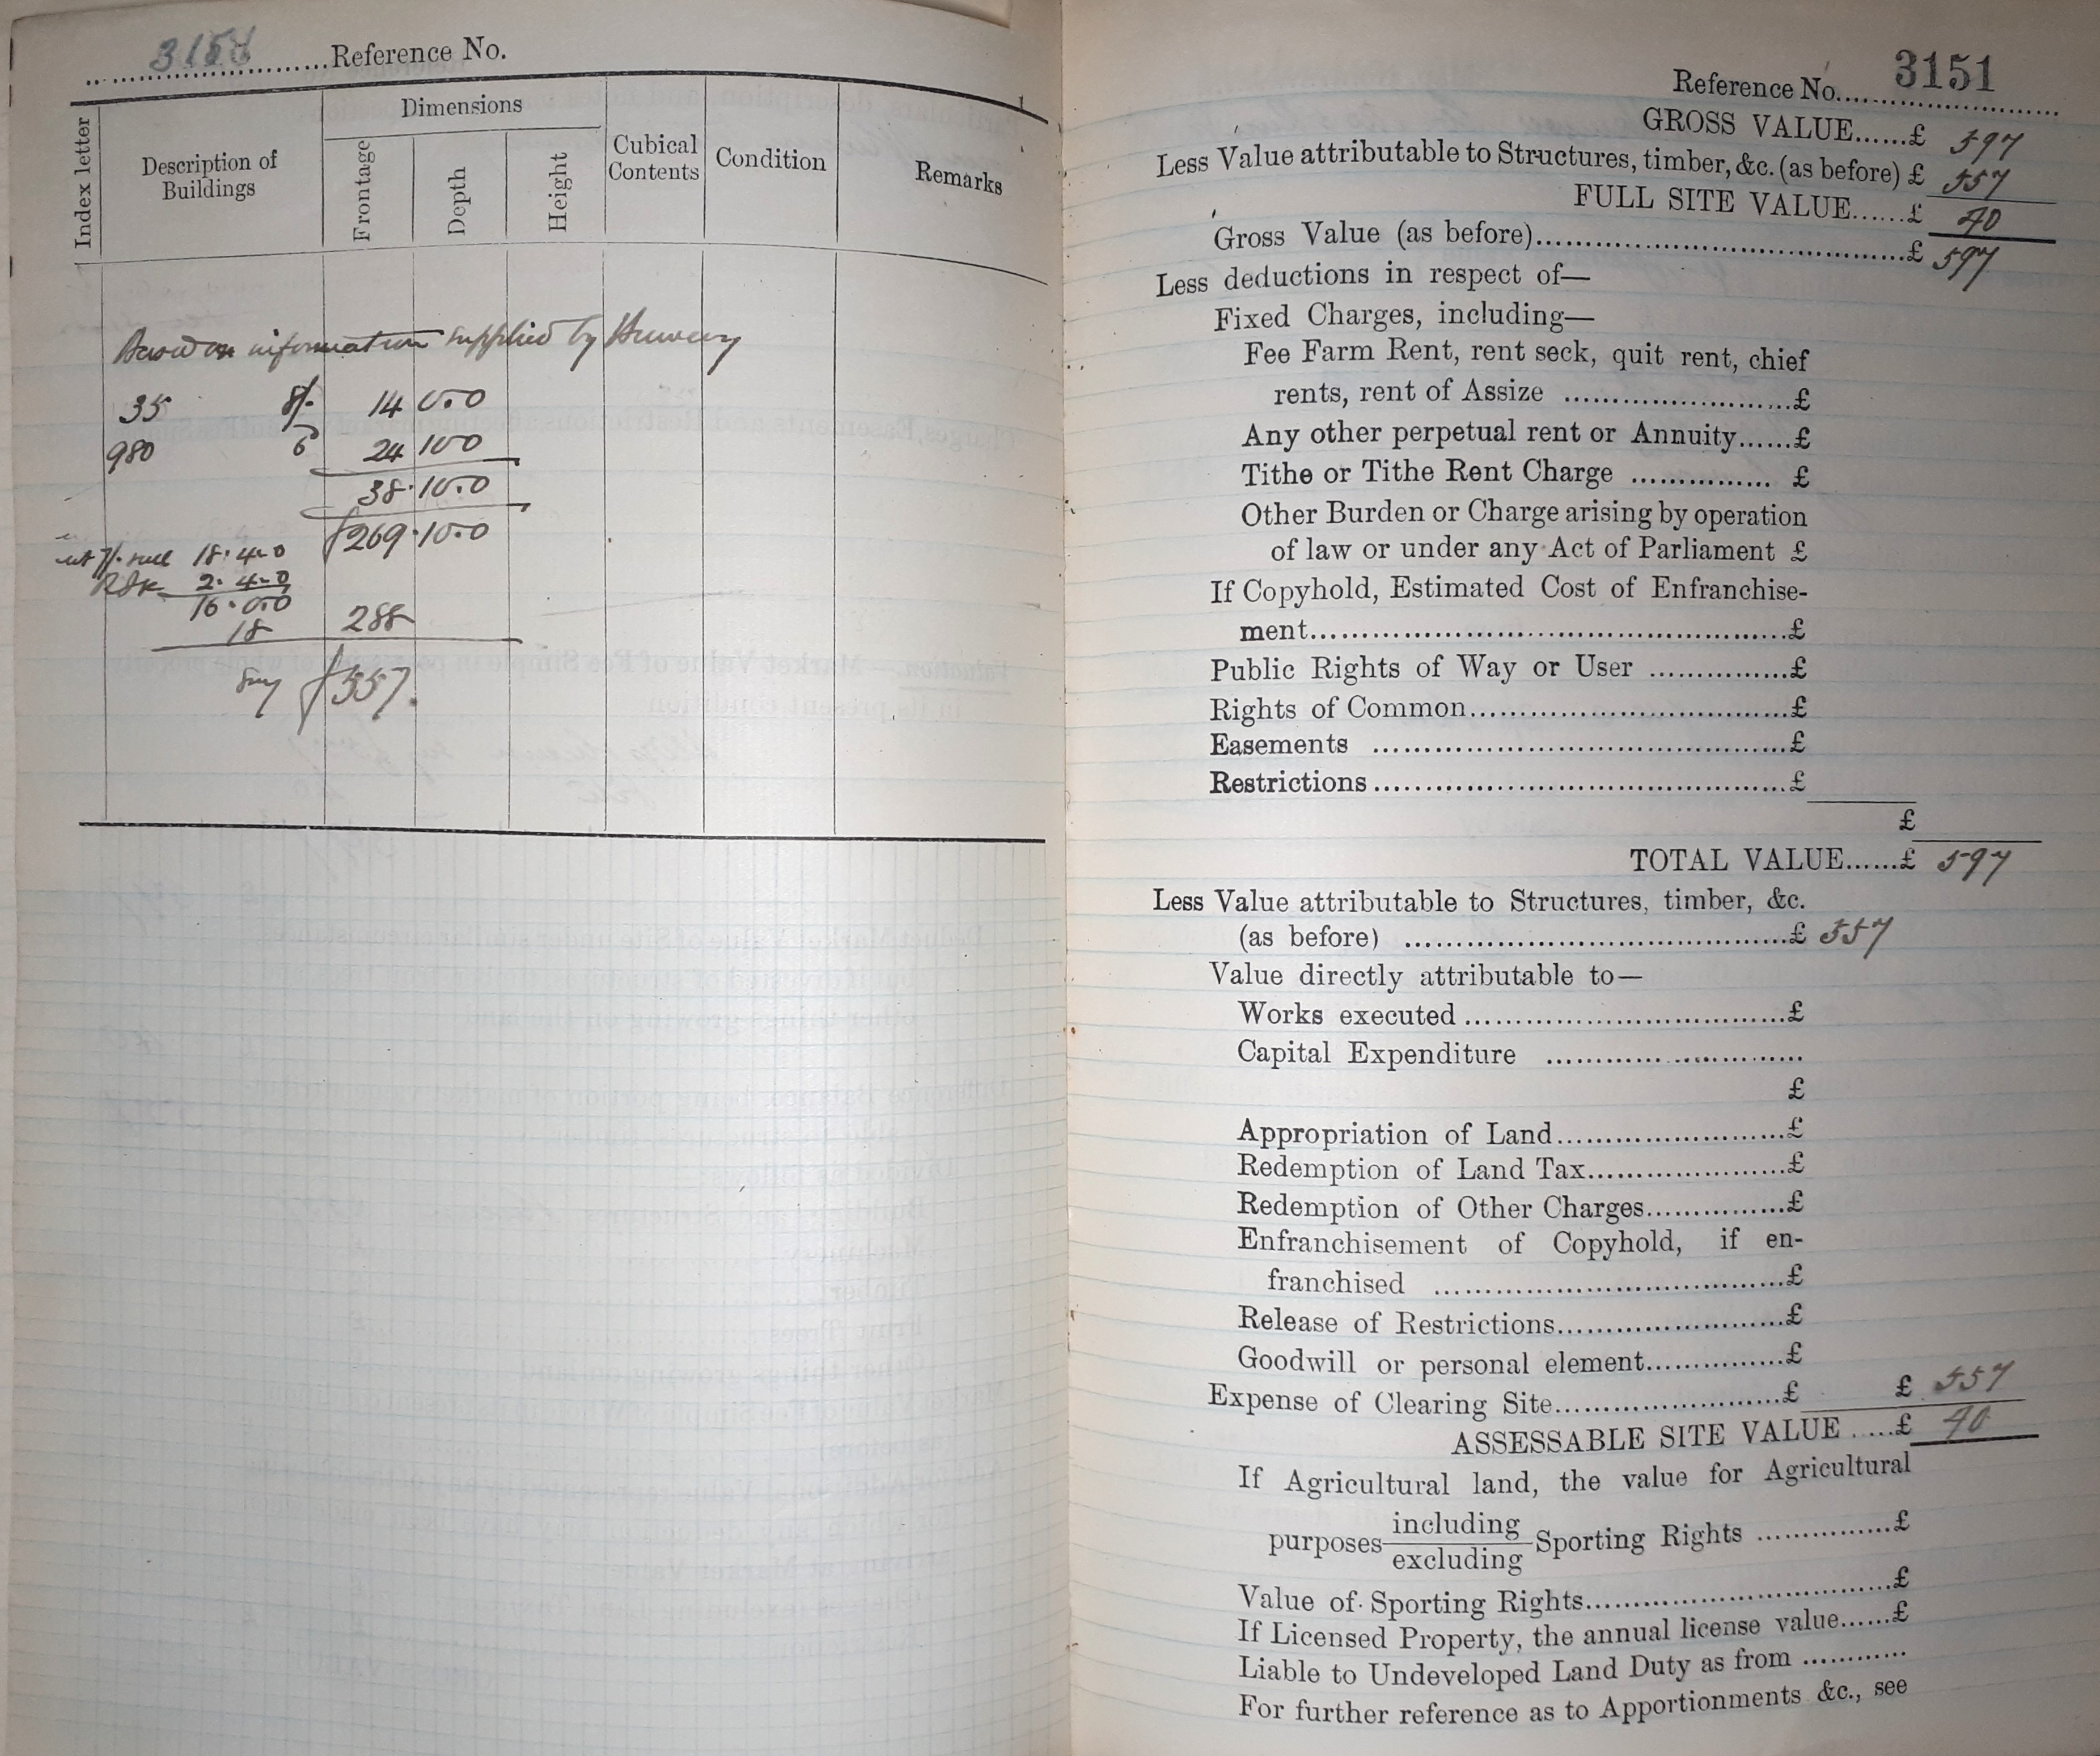 Reference No.
Index letter
Description of Buildings
Dimensions
Frontage
Depth
Height
Cubical Contents
Condition
Remarks
Based on information supplied by
35 8/- 14 0.0
980 6 24 10 0
38.10.0
£269.10.0
18.4.0
2.4.0
16.0.0
18 288
Say £557.
Reference No. 3151
GROSS VALUE......£ 597
Less Value attributable to Structures, timber, &c. (as before) £ 557
FULL SITE VALUE......£ 40
Gross Value (as before)......£ 597
Less deductions in respect of—
Fixed Charges, including—
Fee Farm Rent, rent seck, quit rent, chief
rents, rent of Assize ......£
Any other perpetual rent or Annuity......£
Tithe or Tithe Rent Charge ...... £
Other Burden or Charge arising by operation
of law or under any Act of Parliament £
If Copyhold, Estimated Cost of Enfranchise-
ment......£
Public Rights of Way or User ......£
Rights of Common......£
Easements ......£
Restrictions......£
£
TOTAL VALUE......£ 597
Less Value attributable to Structures, timber, &c.
(as before) ......£ 557
Value directly attributable to—
Works executed ......£
Capital Expenditure ......
£
Appropriation of Land......£
Redemption of Land Tax......£
Redemption of Other Charges......£
Enfranchisement of Copyhold, if en-
franchised ......£
Release of Restrictions......£
Goodwill or personal element......£
Expense of Clearing Site......£ £ 557
ASSESSABLE SITE VALUE .....£ 40
If Agricultural land, the value for Agricultural
purposes including excluding Sporting Rights ......£
Value of Sporting Rights......£
If Licensed Property, the annual license value......£
Liable to Undeveloped Land Duty as from ............
For further reference as to Apportionments &c., see